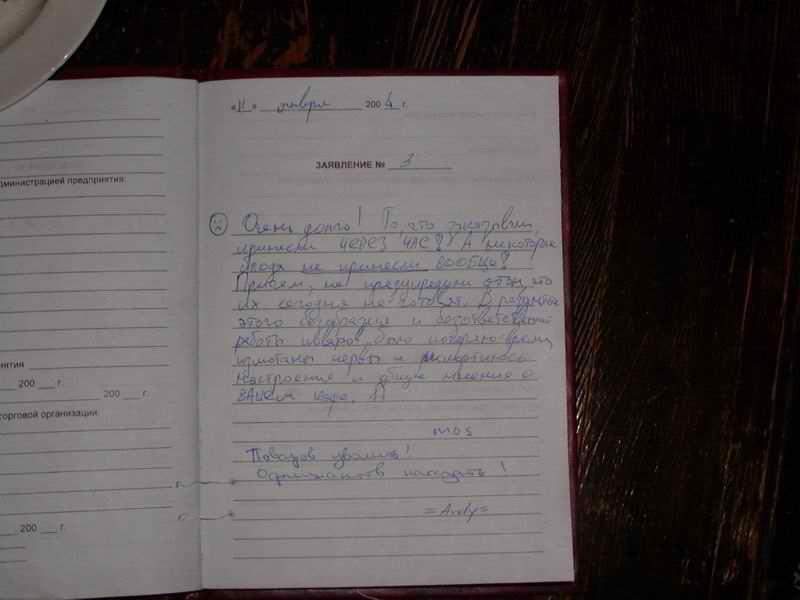 дминистрацией предприятия:
иятия
200 г.
200 г.
орговой организации:
200 г.
«11» января 2004 г.
ЗАЯВЛЕНИЕ № 3
Очень долго! То, что заказывали,
принесли ЧЕРЕЗ ЧАС! А некоторые
блюда не принесли ВООБЩЕ!
Причем, не предупредили о том, что
их сегодня не готовят. В результате
этого безобразия и безответственной
работы поваров, было потеряно время,
измотаны нервы и испортилось
настроение и общее мнение о
ВАШЕМ
mos
Поваров уволить!
Официантов наказать!
=Andy=